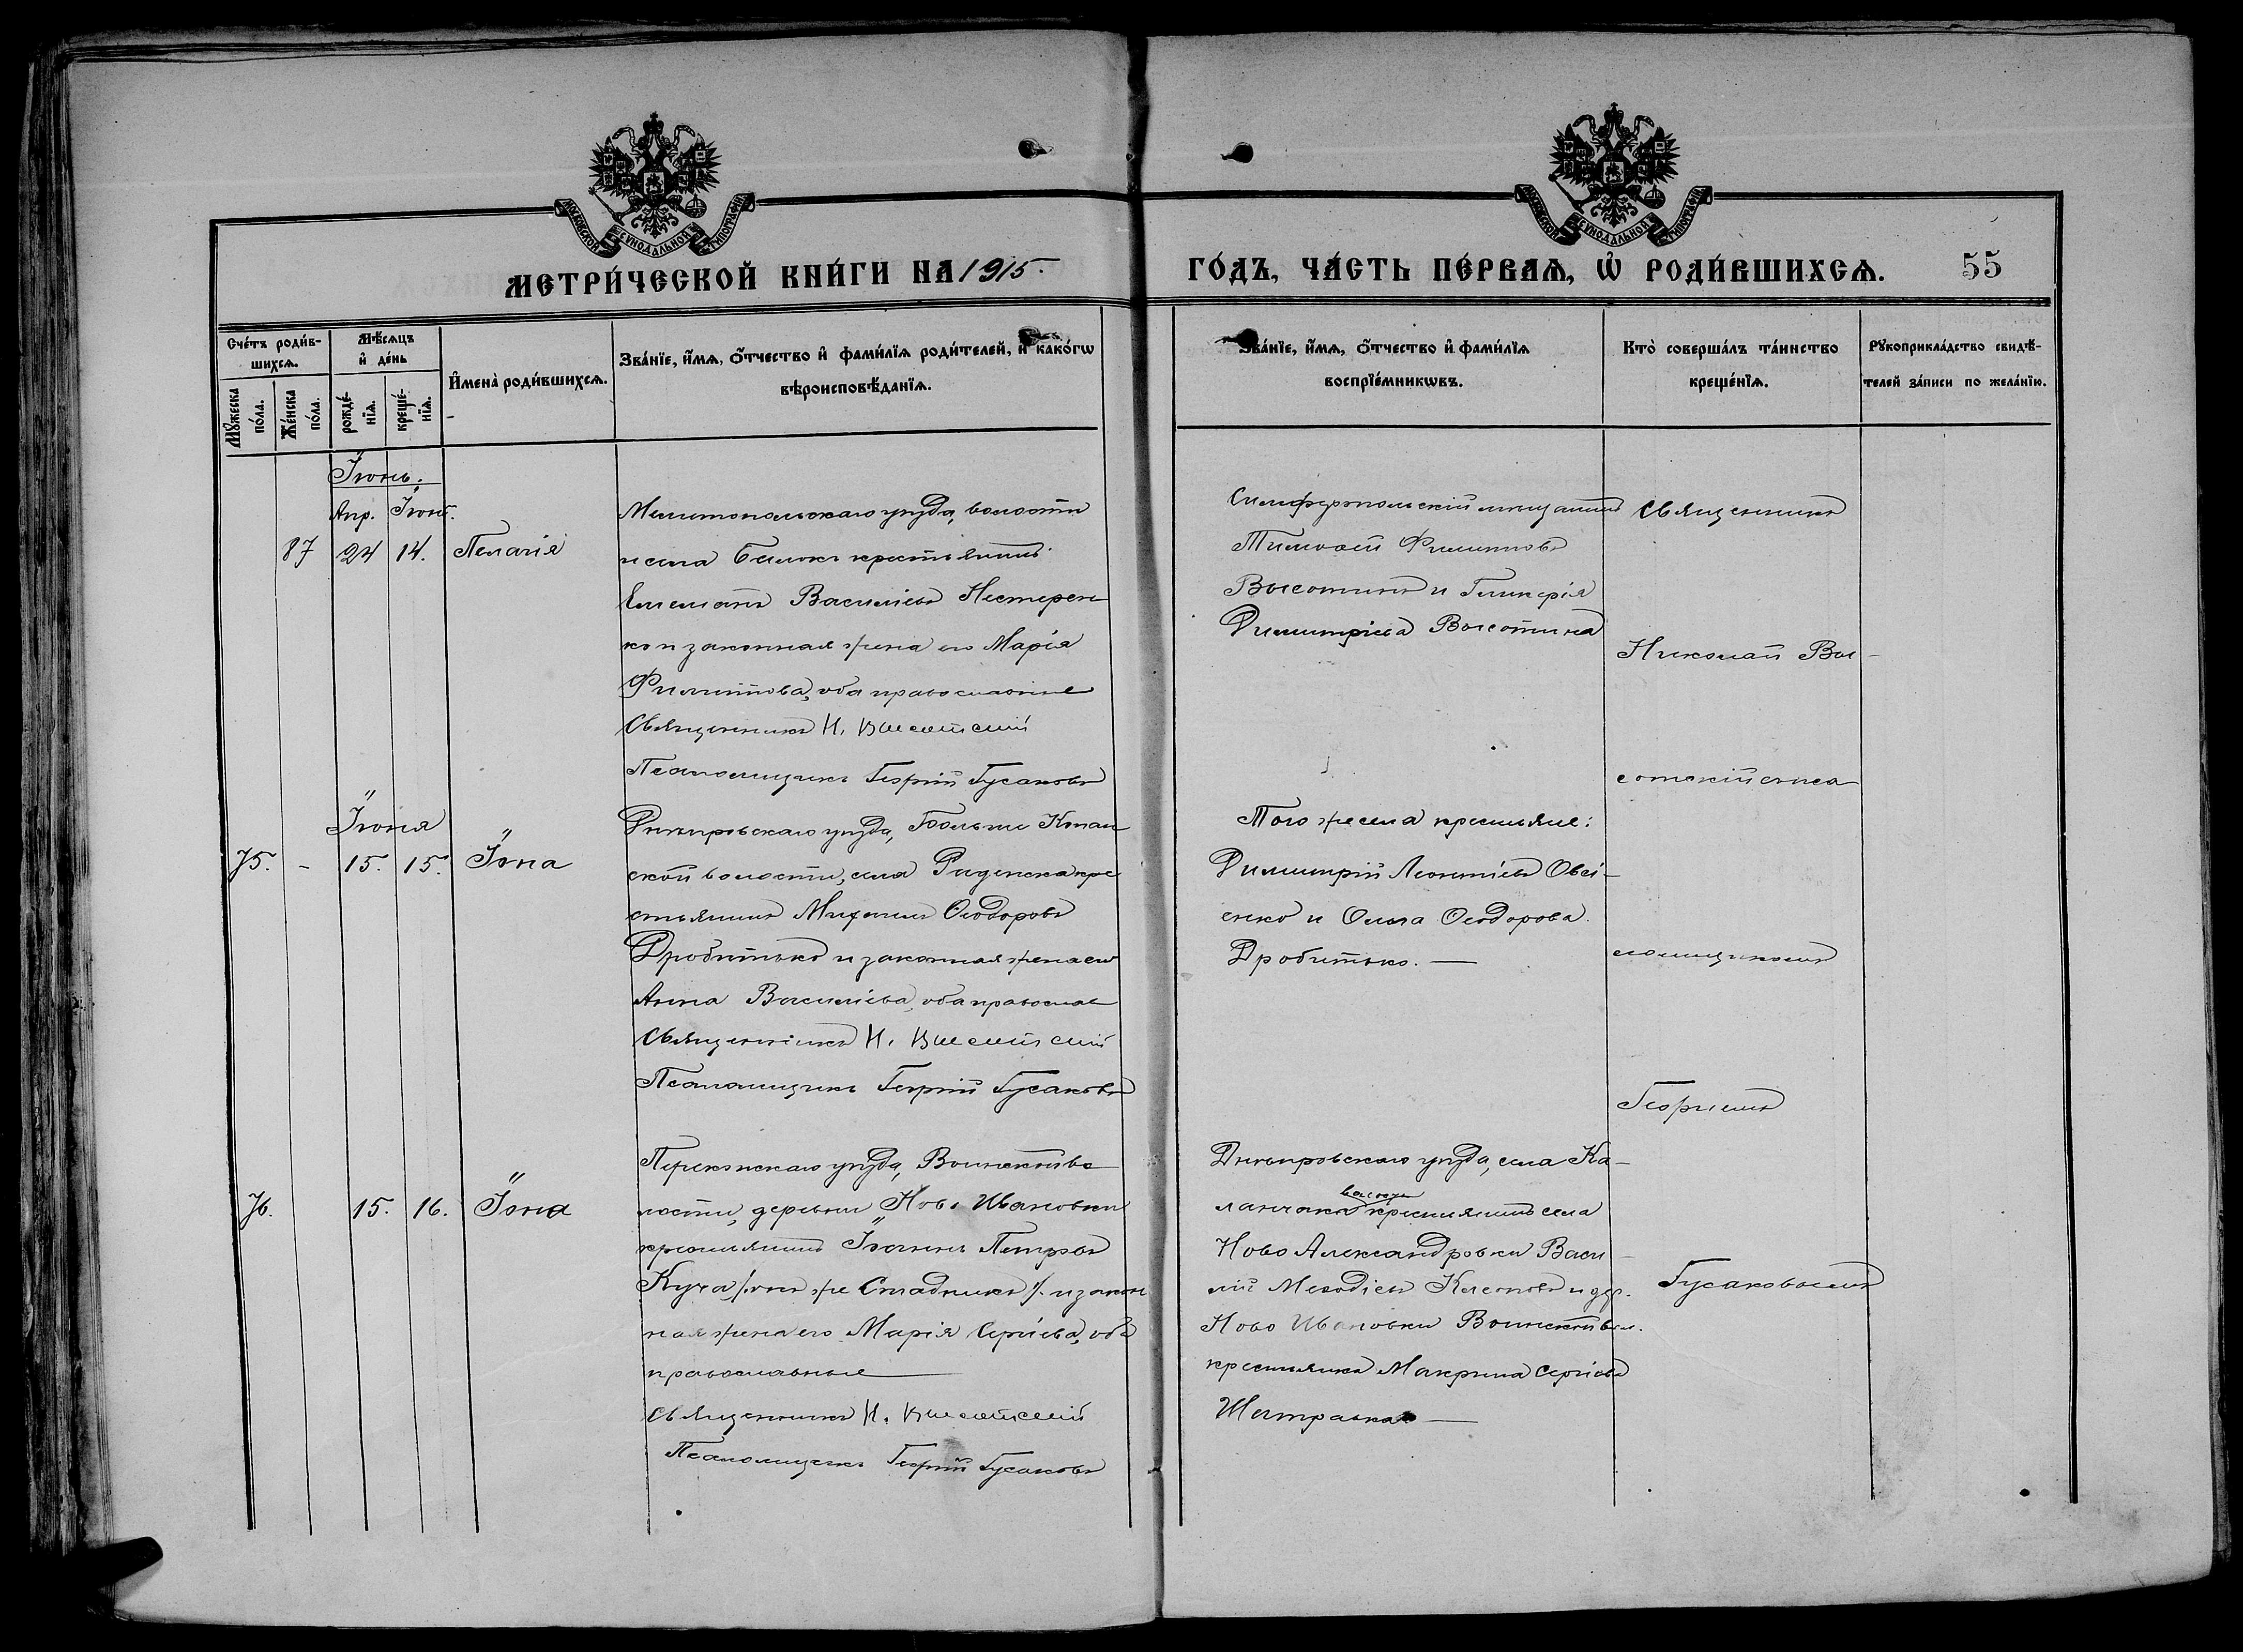 МОСКОВСКОЙ СѴНОДАЛЬНОЙ ТИПОГРАФІИ
МОСКОВСКОЙ СѴНОДАЛЬНОЙ ТИПОГРАФІИ
МЕТРИ́ЧЕСКОЙ КНИ́ГИ НА 1915.
ГО́ДЪ, ЧА́СТЬ ПЕ́РВАѦ, Ѡ҆ РОДИ́ВШИХСѦ. 55
Сче́тъ роди́в-
шихсѧ.
Мꙋ́жеска по́ла.
Же́нска по́ла.
Мѣ́сѧцъ
и҆ де́нь
рожде́-
нїѧ.
креще́-
нїѧ.
И҆мена̀ роди́вшихсѧ.
Зва́нїе, и҆́мѧ, ѻ҆́тчество и҆ фами́лїѧ роди́телей, и҆ како́гѡ
вѣроисповѣ́данїѧ.
Зва́нїе, и҆́мѧ, ѻ҆́тчество и҆ фами́лїѧ
воспрїе́мникѡвъ.
Кто̀ соверша́лъ та́инство
креще́нїѧ.
Рꙋкоприкла́дство свидѣ́-
телей за́писи по жела́нїю.
Іюнь.
Апр. Іюнь.
87 24 14. Пелагія
Мелитопольскаго уѣзда, волости
и села крестьянинъ
Емельянъ Василіевъ Нестерен
ко и законная жена его Марія
Филиппова, оба православные
Священникъ Н. Высотскій
Псаломщикъ Георгій Гусаковъ
Симферопольскій мѣщанинъ
Тимоѳей Филипповъ
Высотинъ и Гликерія
Димитріева Высотина
Священникъ
Николай Вы-
сотскій съ пса
ломщикомъ
Георгіемъ
Гусаковымъ
Іюня
75. - 15. 15. Іона
Днѣпровскаго уѣзда, Больше Копан
ской волости, села Раденска кре
стьянинъ Михаилъ Ѳеодоровъ
Дробитько и законная жена его
Анна Василіева, оба православ
Священникъ Н. Высотскій
Псаломщикъ Георгій Гусаковъ
Того же села крестьяне:
Димитрій Леонтіевъ Овсі-
енко и Ольга Ѳеодорова
Дробитько. —
76. 15. 16. Іона
Перекопскаго уѣзда, Воинской во
лости, деревни Ново Ивановки
крестьянинъ Іоаннъ Петровъ
Куча /онъ же Стадникъ/ и закон
ная жена его Марія Сергіева, оба
православные
Священникъ Н. Высотскій
Псаломщикъ Георгій Гусаковъ
Днѣпровскаго уѣзда, села Ка-
волости
ланчака крестьянинъ села
Ново Александровки Васи-
лій Меѳодіевъ и дер.
Ново Ивановки Воинской вол.
крестьянка Макрина Сергіева